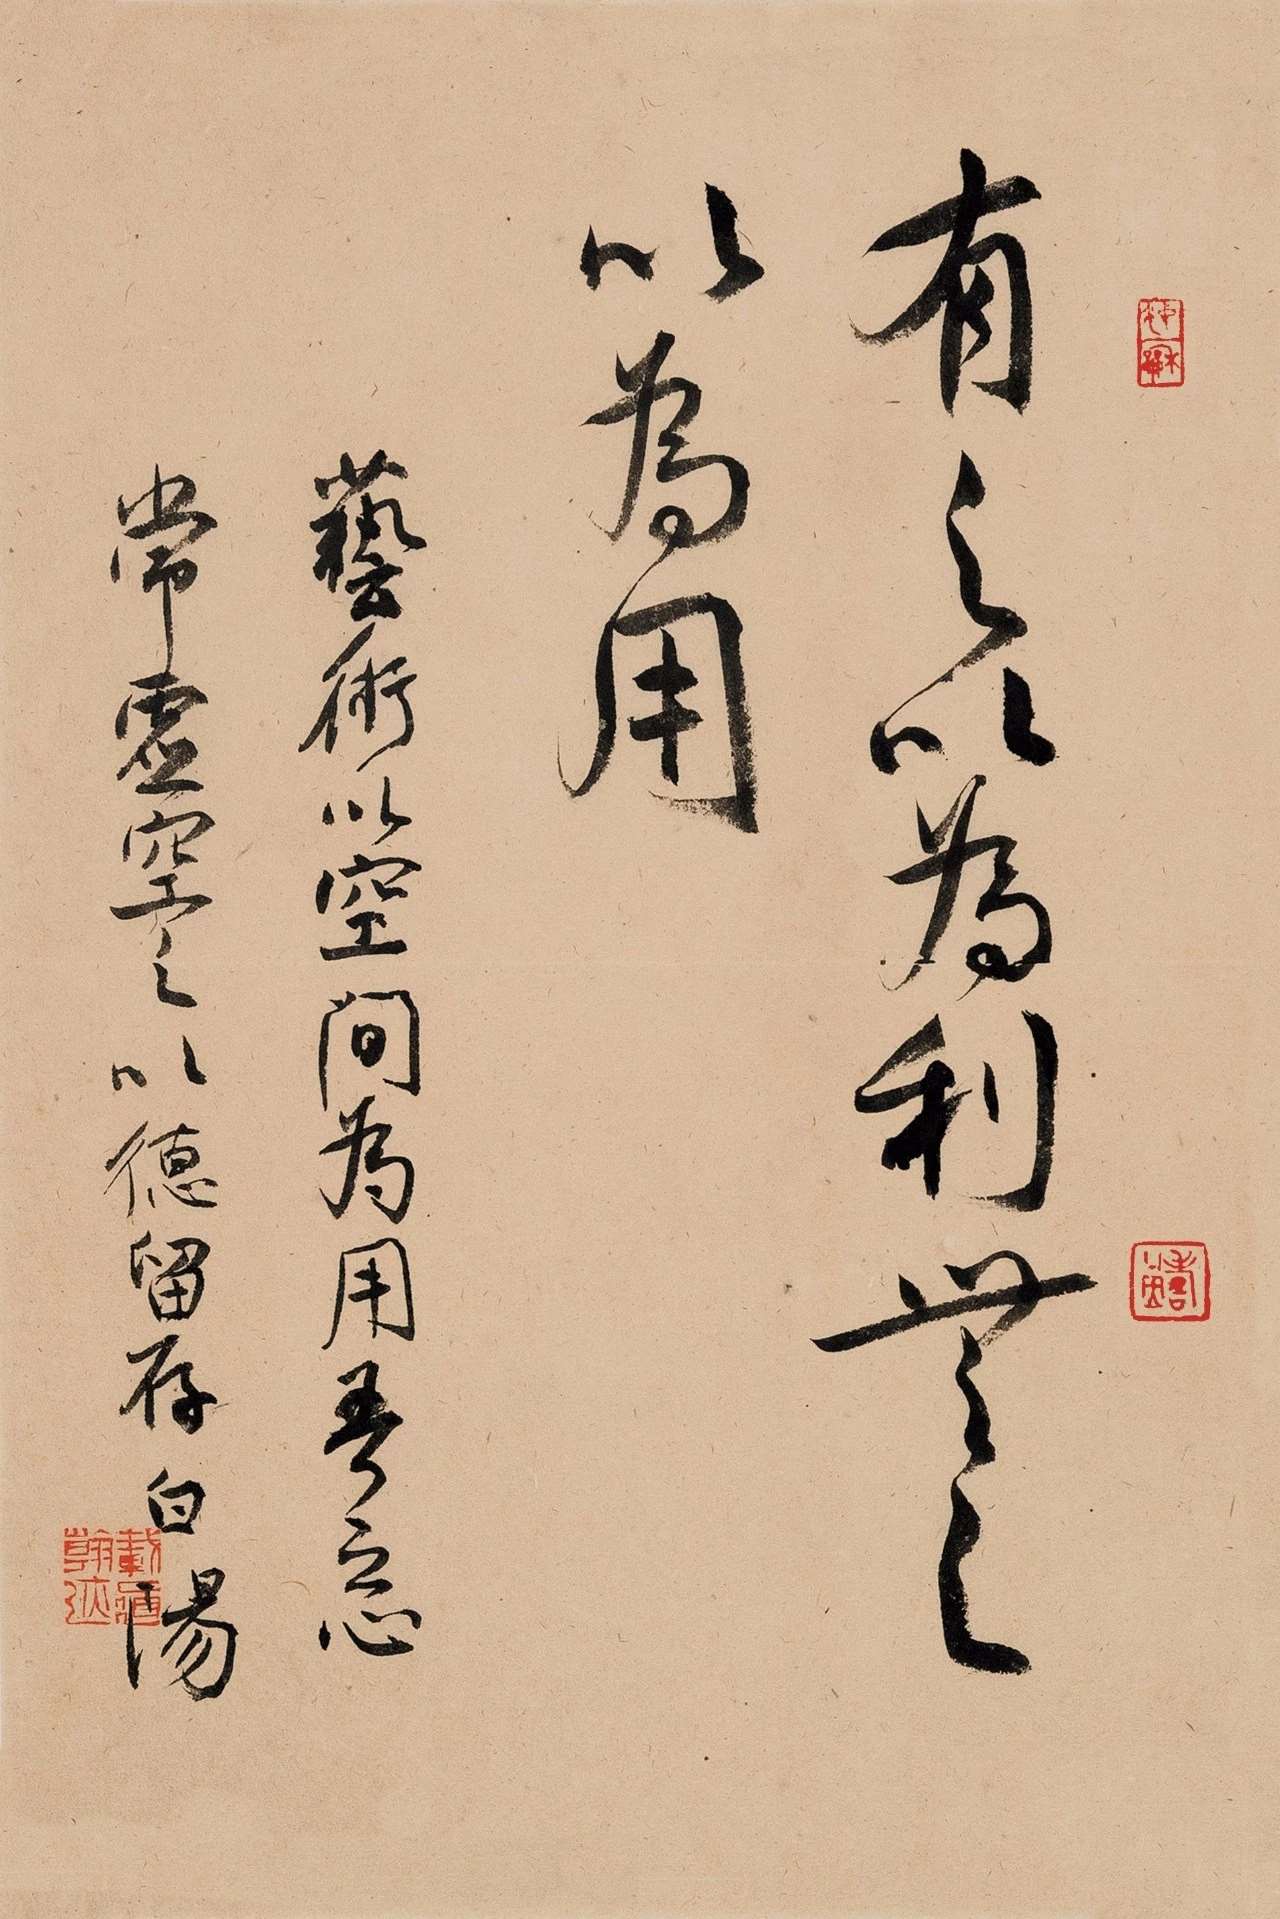 有之以為利無之
以為用
藝術以空間為用吾之心
常虛空之以德留存白湯